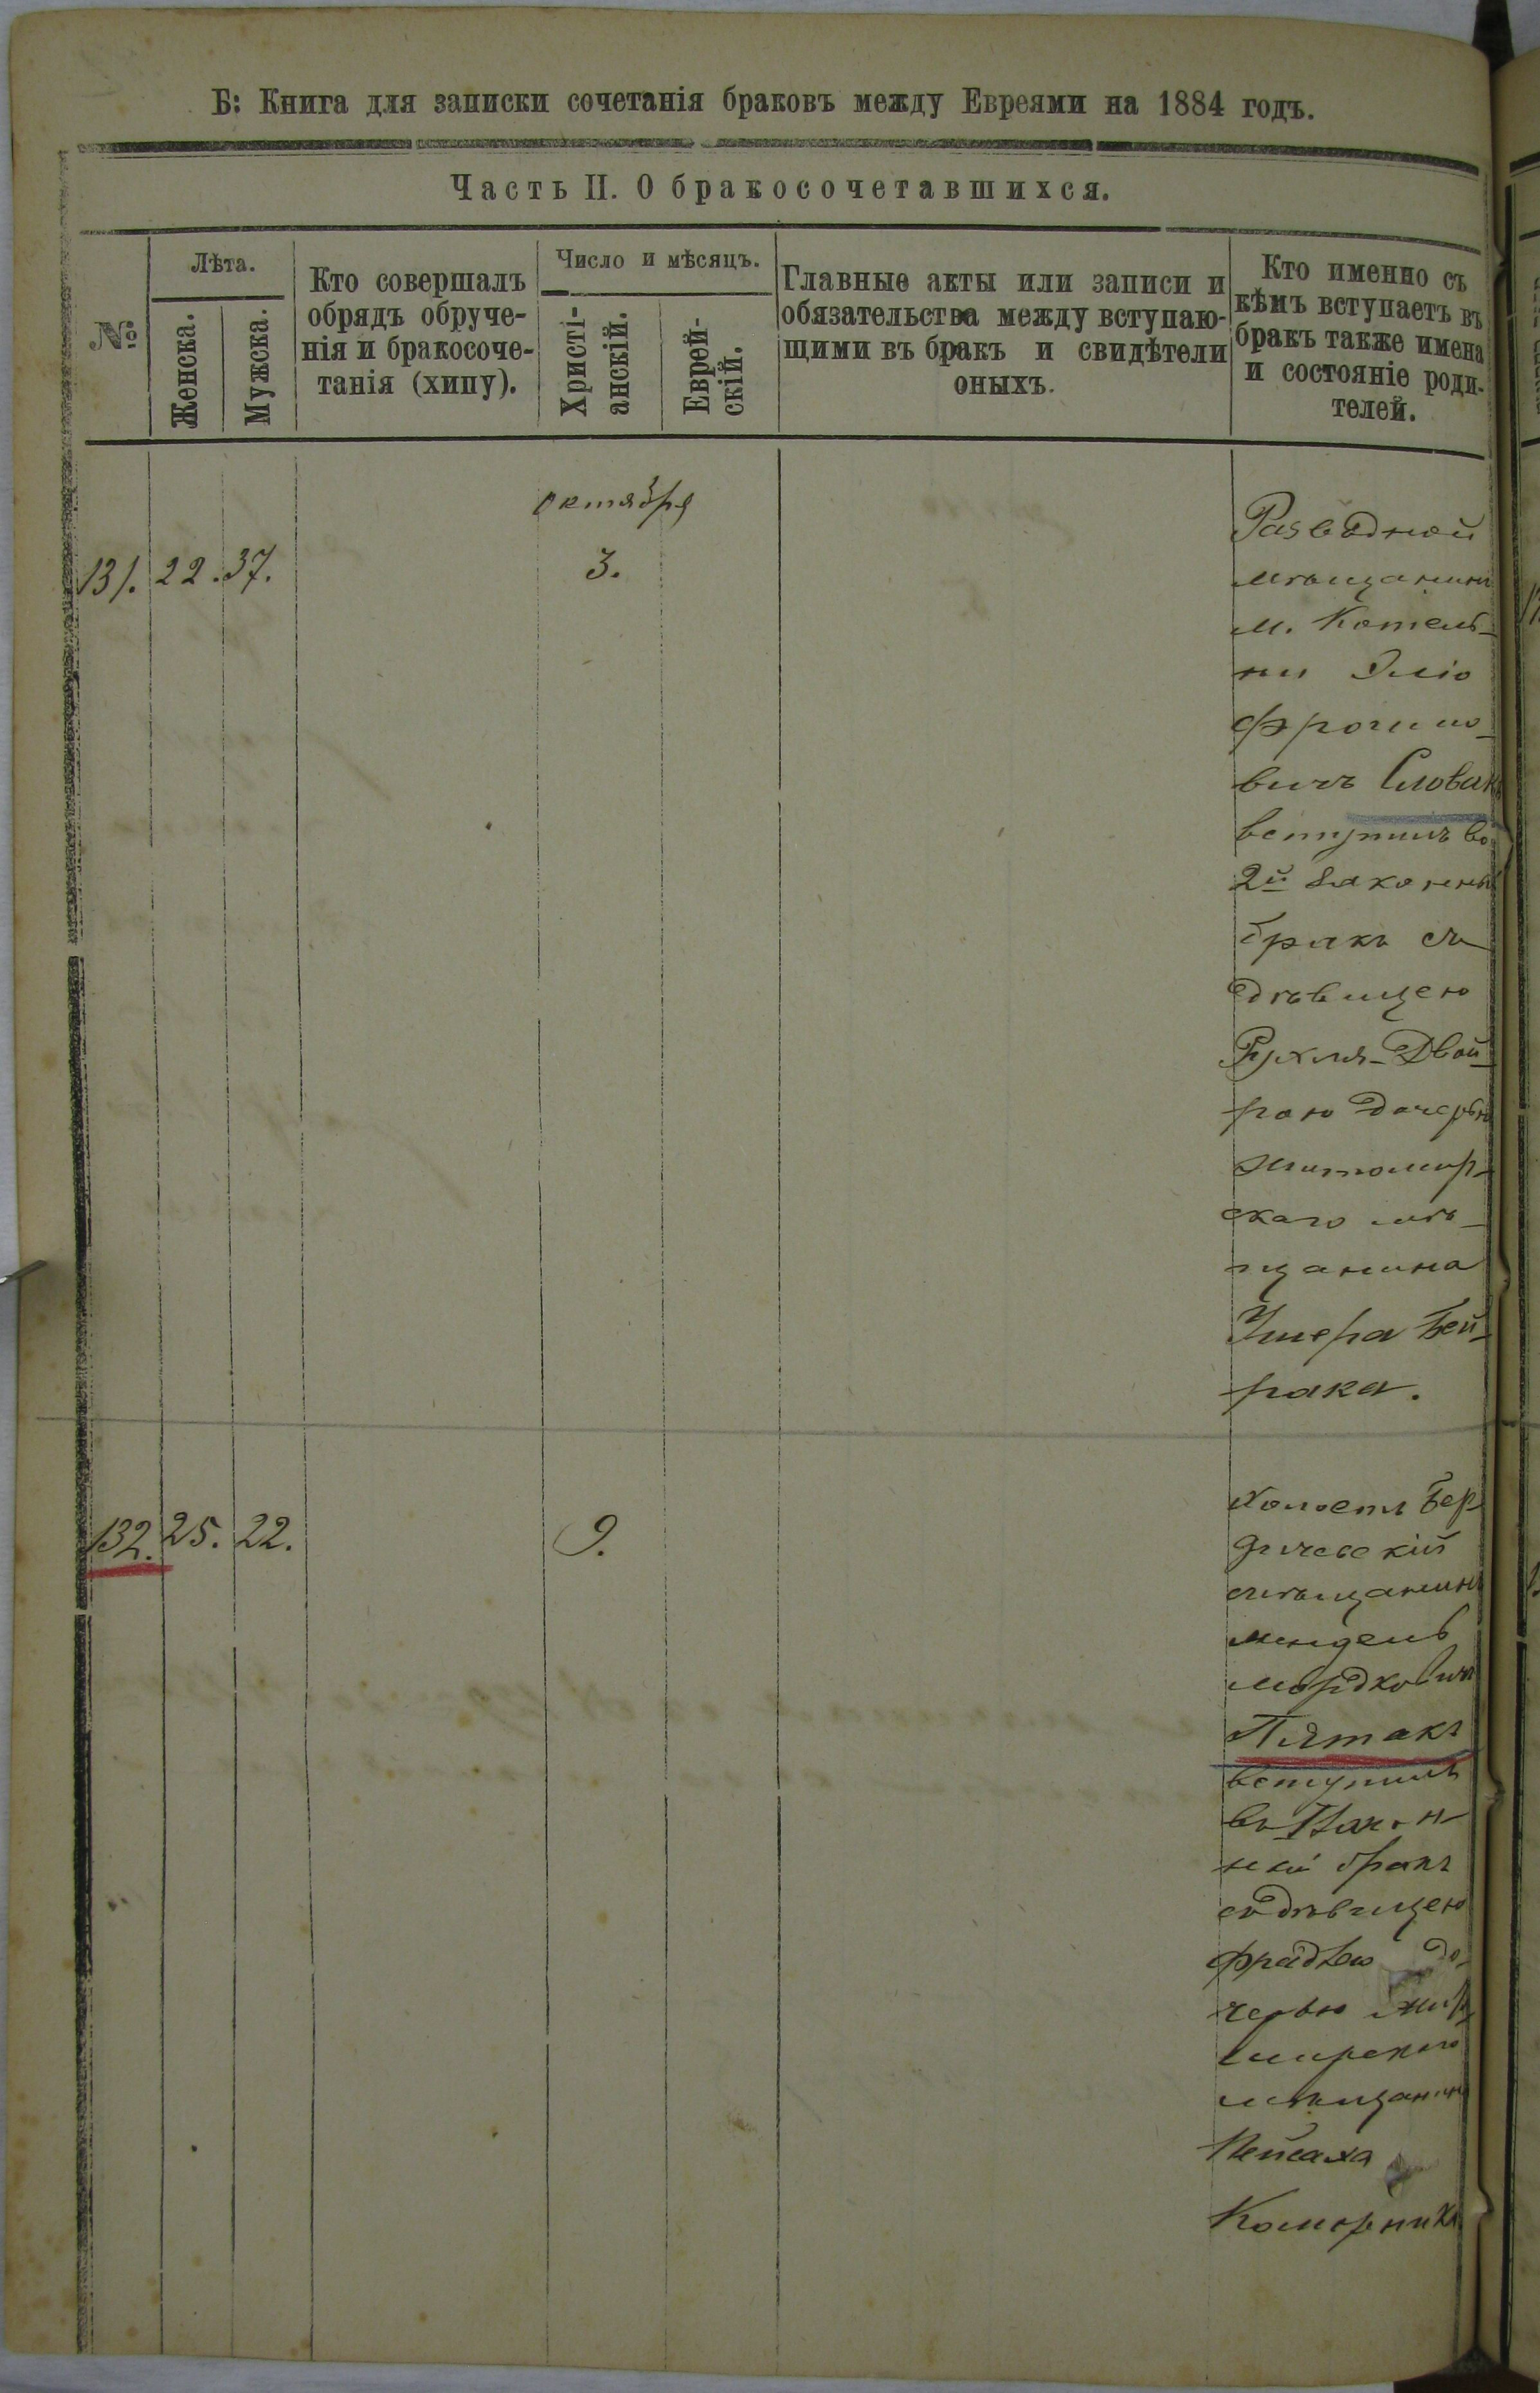 Б: Книга для записки сочетанія браковъ между Евреями на 1884 годъ.
Часть II. О бракосочетавшихся.
№
Лѣта.
Женска.
Мужска.
Кто совершалъ
обрядъ обруче-
нія и бракосоче-
танія (хипу).
Число и мѣсяцъ.
Христі-
анскій.
Еврей-
скій.
Главные акты или записи и
обязательства между вступаю-
щими въ бракъ и свидѣтели
оныхъ.
Кто именно съ
кѣмъ вступаетъ въ
бракъ также имена
и состояніе роди-
телей.
октября
131. 22. 37. 3.
Разводной
мѣщанинъ
м. Котель-
ни Эліо
Фроимо-
вичъ Словакъ
вступилъ во
2й законный
бракъ съ
дѣвицею
Рухля-Двой-
рою дочерью
житомир-
скаго мѣ-
щанина
Ушера Бей-
рака.
132. 25. 22. 9.
Холостъ Бер-
дичевскій
мѣщанинъ
Мендель
Мордковичъ
Пятакъ
вступилъ
въ
ный бракъ
съ дѣвицею
Фрадею до-
черью
мирскаго
мѣщанина
Пейсаха
Коморника